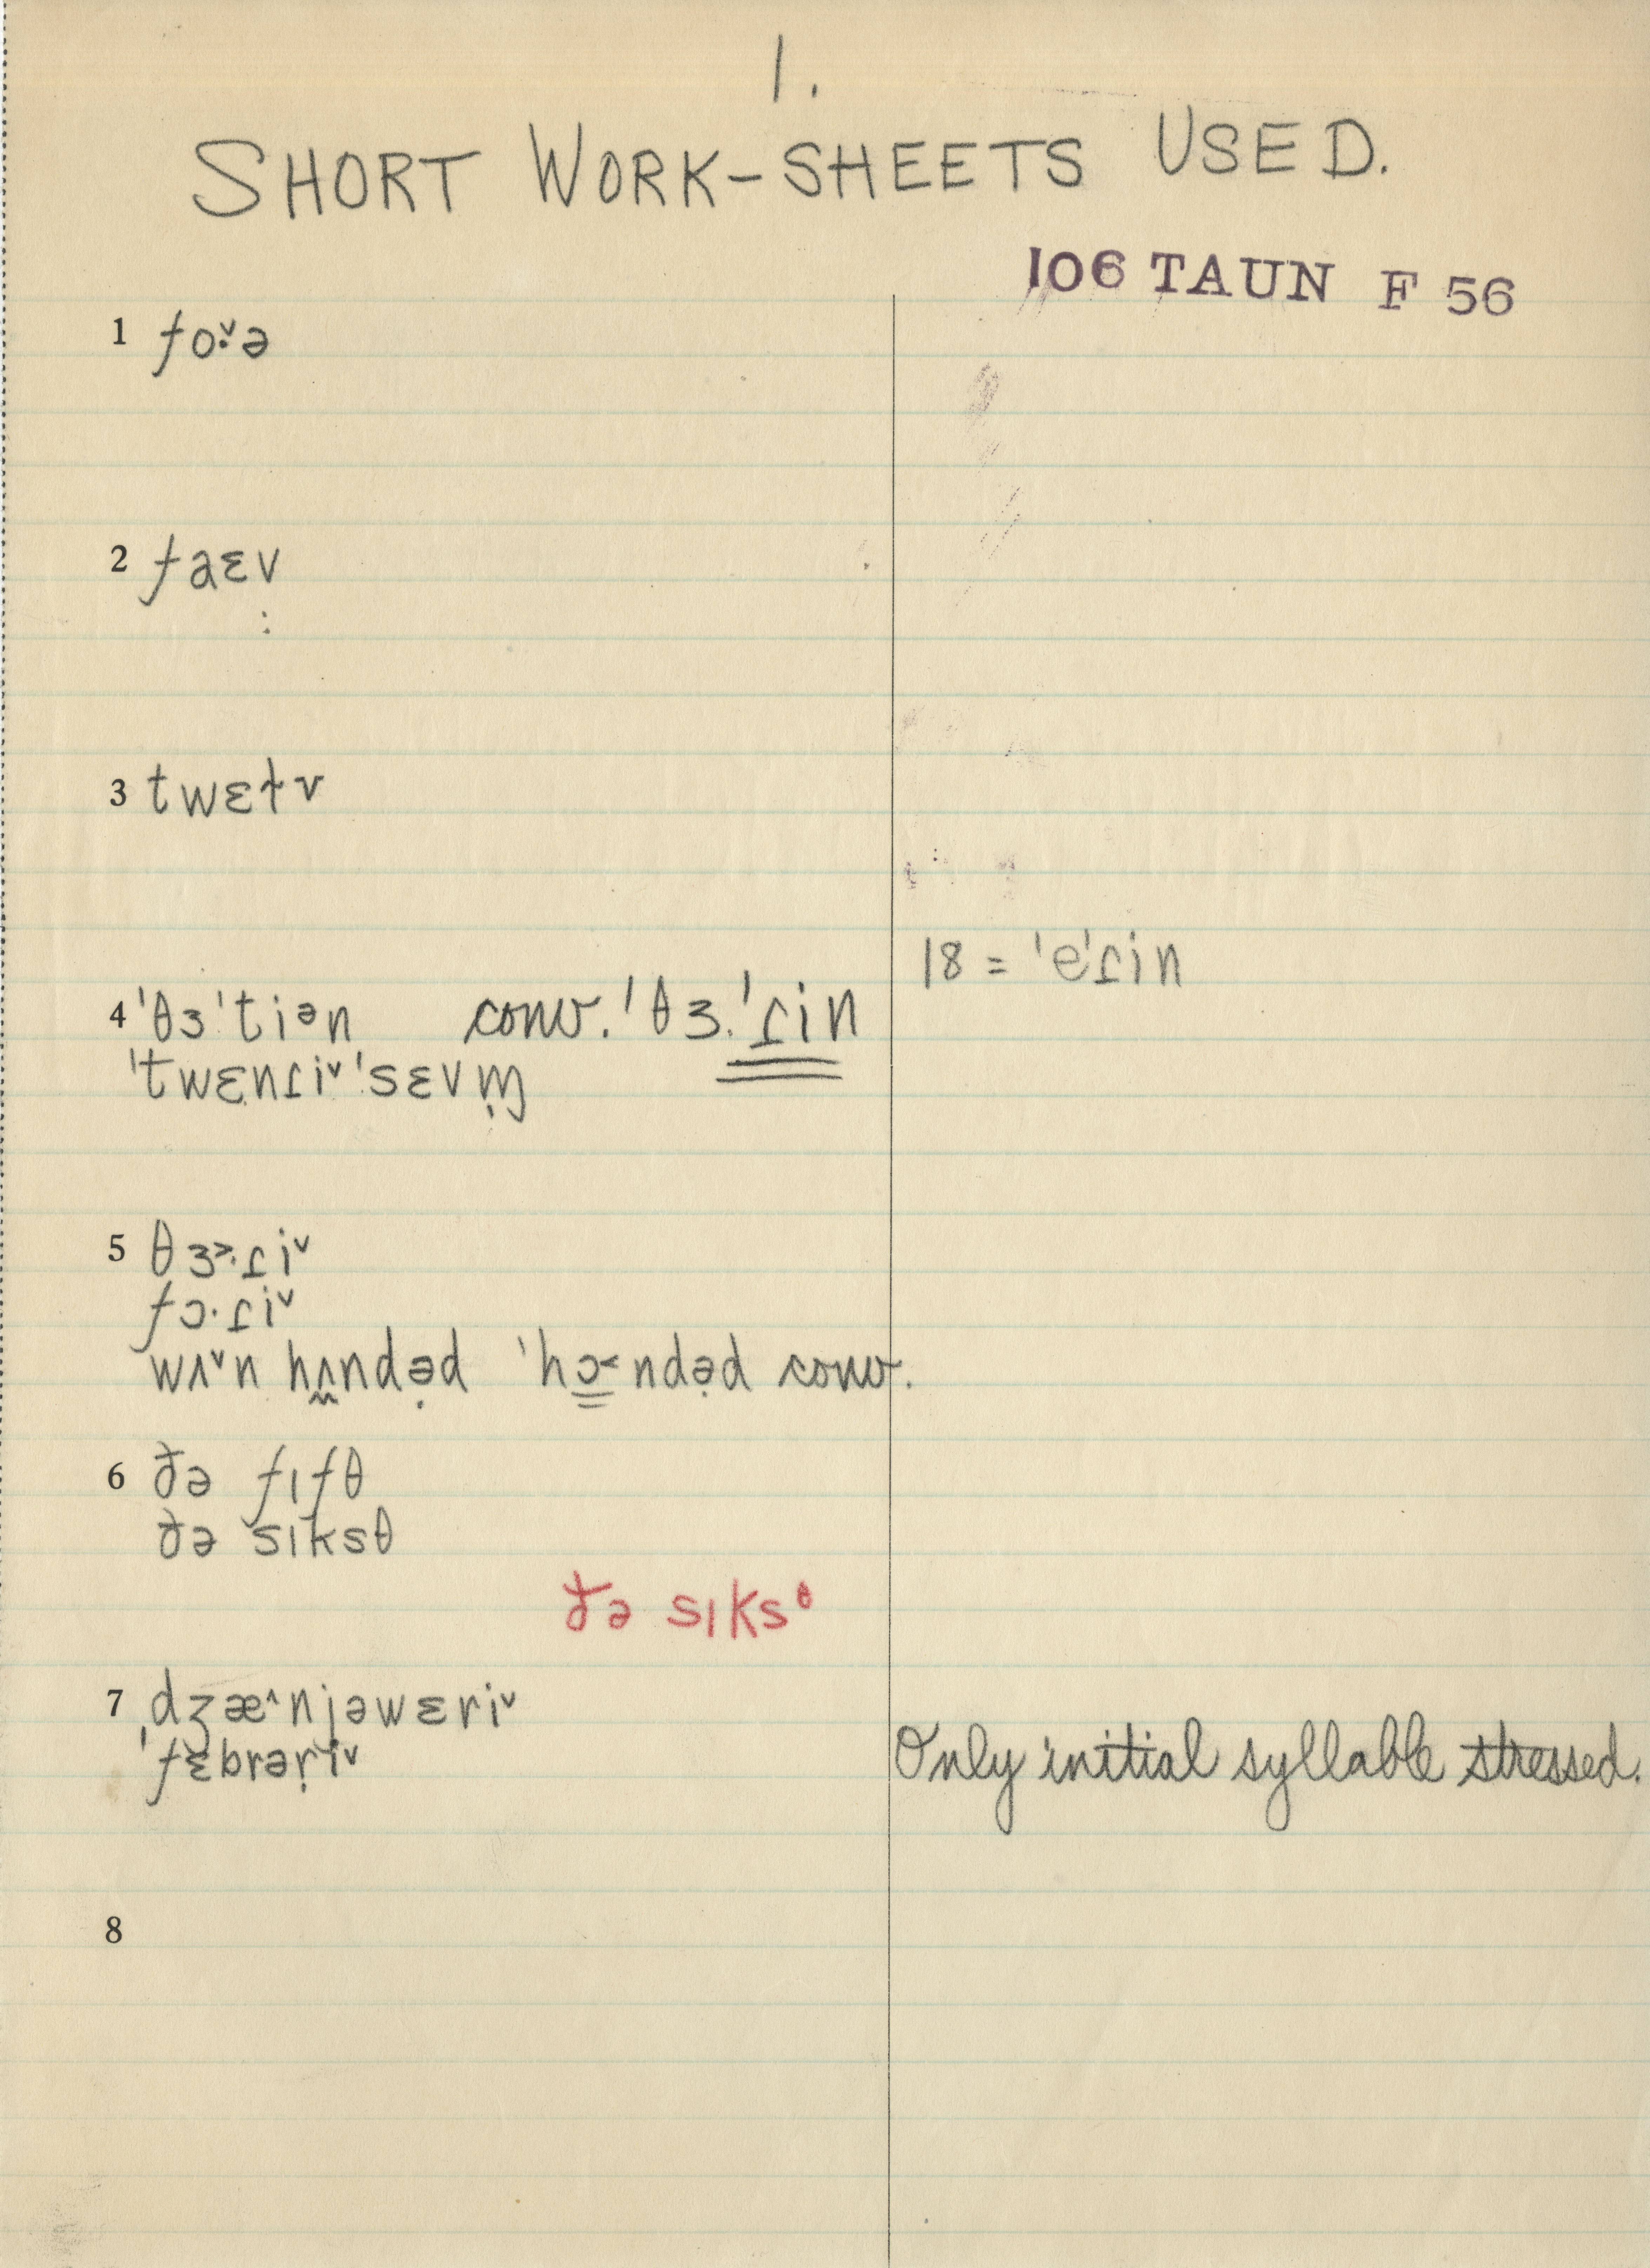 1.
SHORT WORK-SHEETS USED.
106 TAUN F 56
1 foˑ˅ə
2 faɛv
3 twɛɫv
18 = ˈeˈɾin
4 ˈθɜˈtiᵊn conv. ˈθɜ.ˈɾin
ˈtwɛnɾi˅ ˈsɛvm̩
5 θɜ˃·ɾi˅
fɔ·ɾi˅
wʌ˅n hʌndə̣d ˈhɔ˂ndə̣d conv.
6 ðə fɪfθ
ðə sɪksθ
ðə sɪksᶿ
7 ˌdʒæ^njəwɛri˅
ˈfɛbrəṛi˅ Only initial syllable stressed.
8